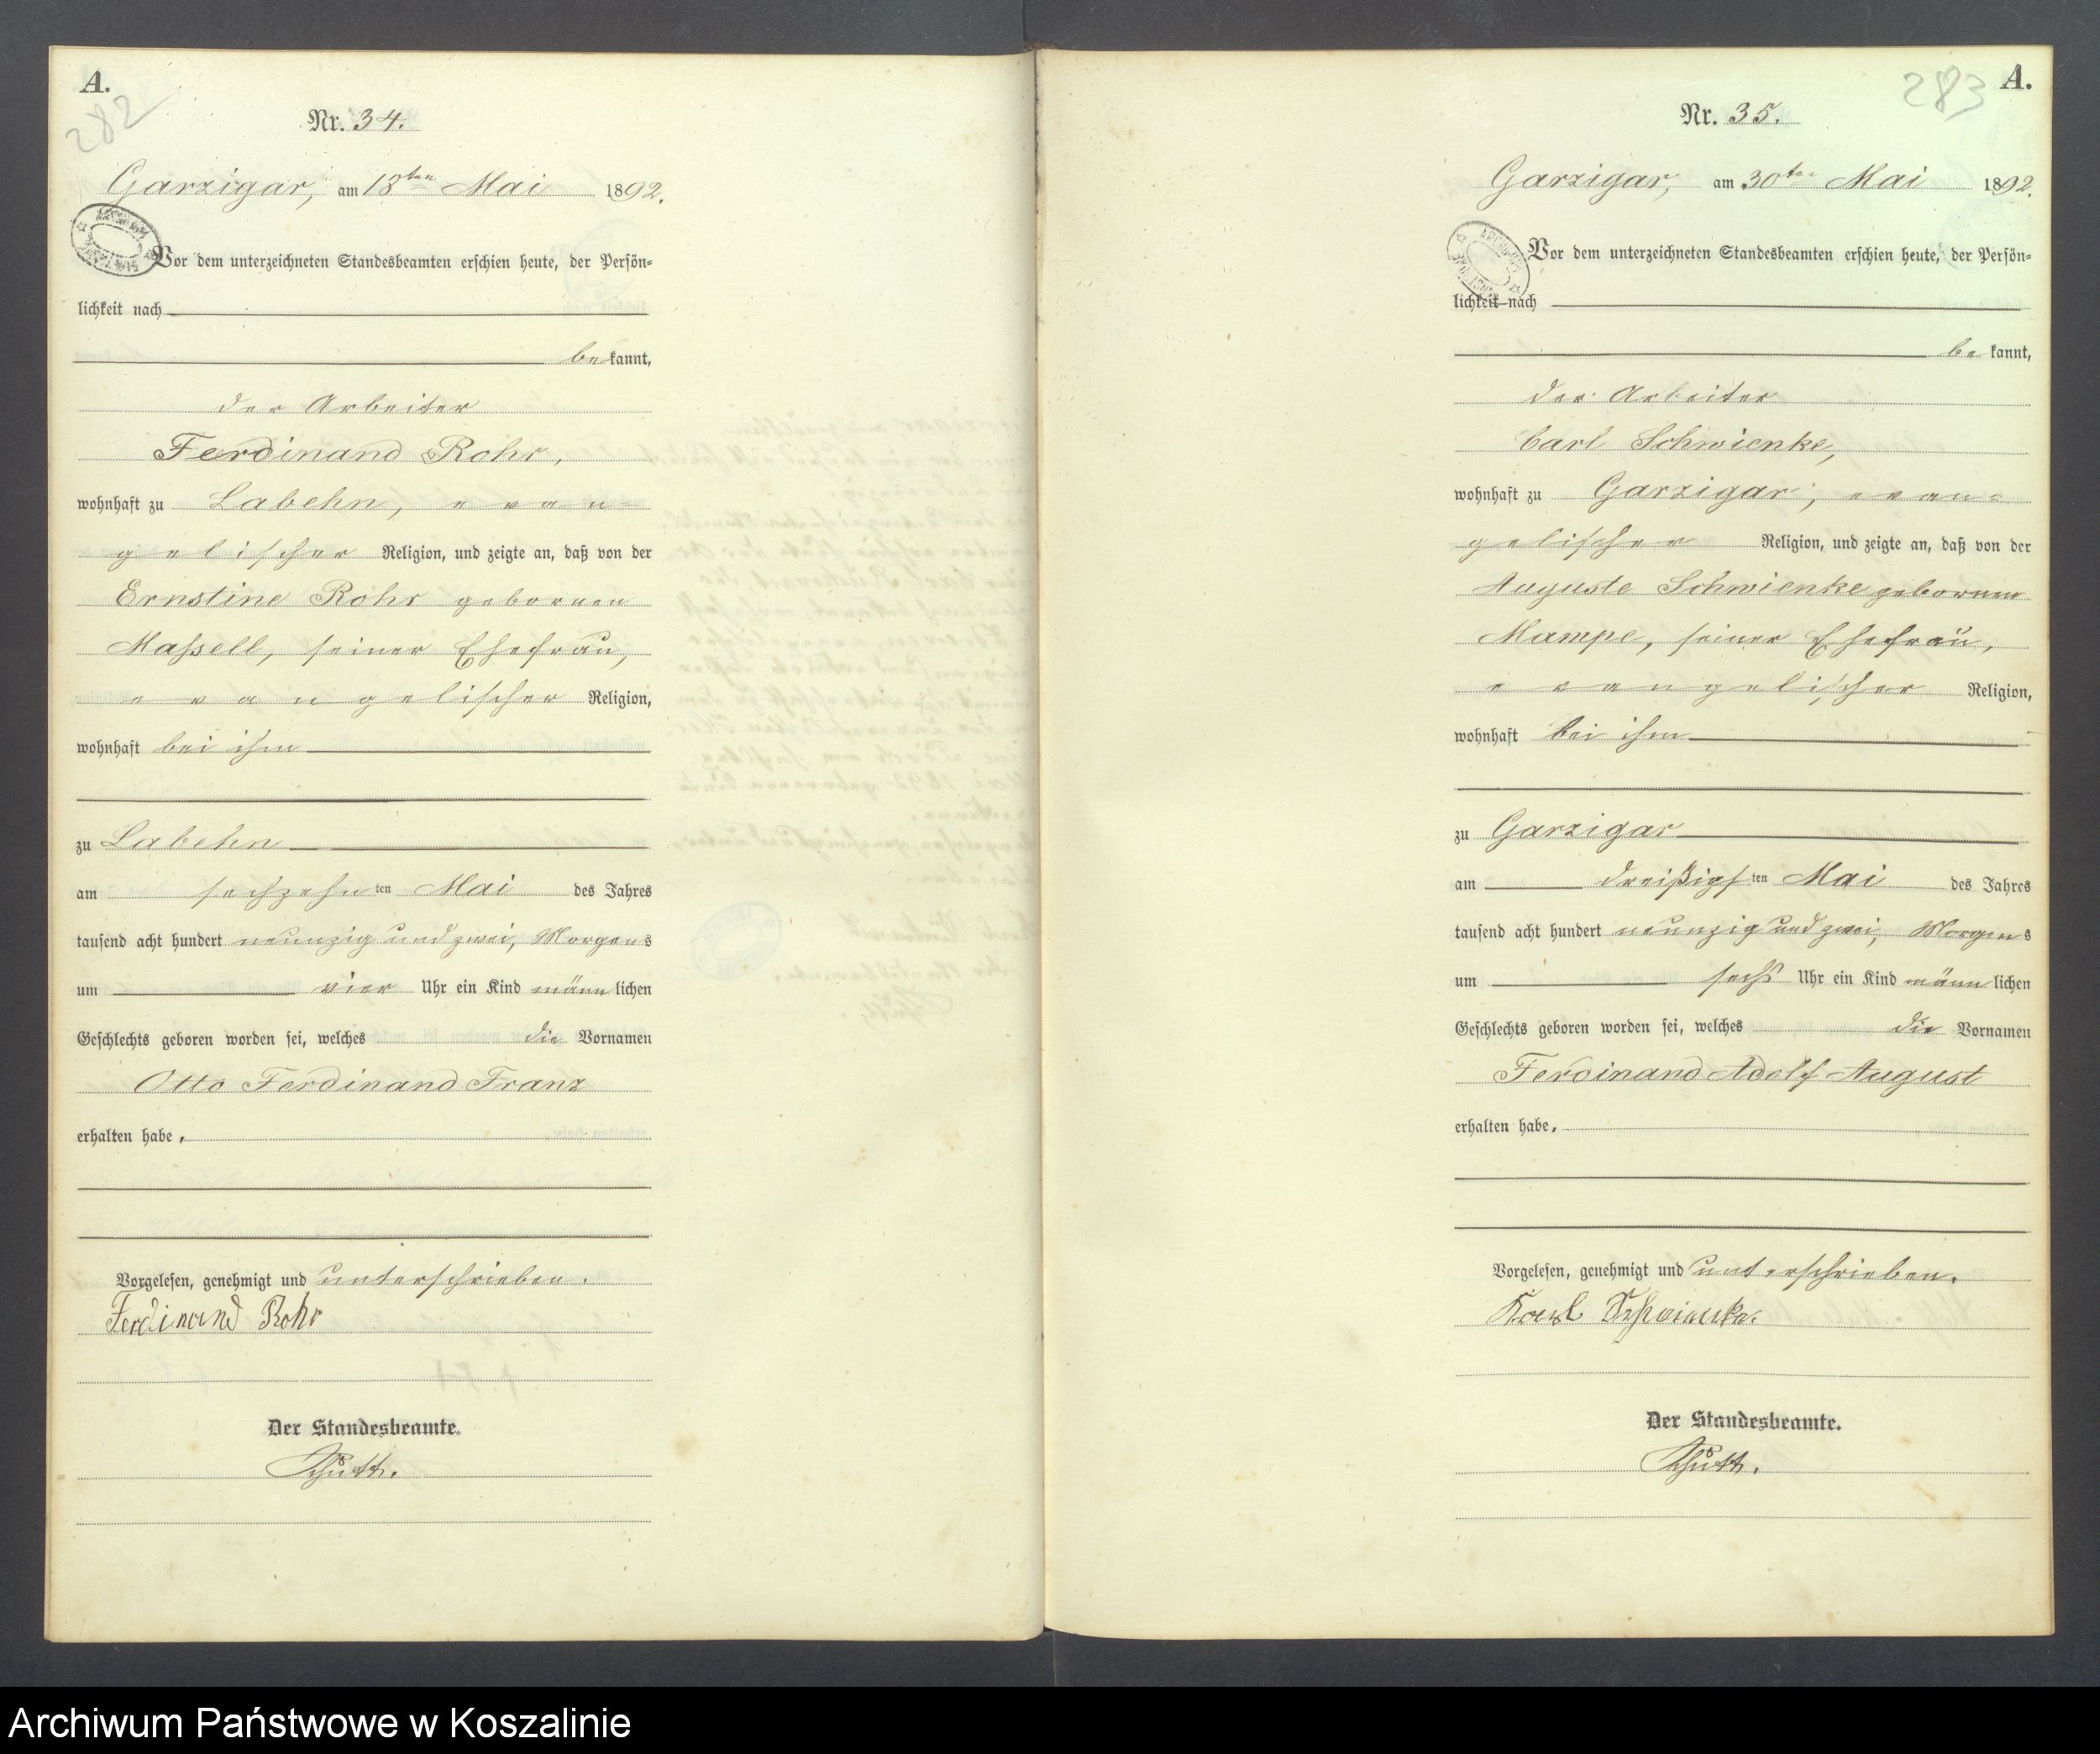 A.
282
Nr. 34.
Garzigar, am 18ten Mai 1892.
Vor dem unterzeichneten Standesbeamten erschien heute, der Persön=
lichkeit nach
bekannt,
der Arbeiter
Ferdinand Rohr,
wohnhaft zu Labehn, evan=
gelischer Religion, und zeigte an, daß von der
Ernstine Rohr gebornen
Maßell, seiner Ehefrau,
evangelischer Religion,
wohnhaft bei ihm
zu Labehn
am sechzehnten Mai des Jahres
tausend acht hundert neunzig und zwei, Morgens
um vier Uhr ein Kind männlichen
Geschlechts geboren worden sei, welches die Vornamen
Otto Ferdinand Franz
erhalten habe.
Vorgelesen, genehmigt und unterschrieben.
Ferdinand Rohr
Der Standesbeamte.
A.
283
Nr. 35.
Garzigar, am 30ten Mai 1892.
Vor dem unterzeichneten Standesbeamten erschien heute, der Persön=
lichkeit nach
bekannt,
der Arbeiter
Carl Schwienke,
wohnhaft zu Garzigar, evan=
gelischer Religion, und zeigte an, daß von der
Auguste Schwienke gebornen
Mampe, seiner Ehefrau,
evangelischer Religion,
wohnhaft bei ihm
zu Garzigar
am dreißigsten Mai des Jahres
tausend acht hundert neunzig und zwei, Morgens
um sechs Uhr ein Kind männlichen
Geschlechts geboren worden sei, welches die Vornamen
Ferdinand Adolf August
erhalten habe.
Vorgelesen, genehmigt und unterschrieben.
Karl Schwienke.
Der Standesbeamte.
Archiwum Państwowe w Koszalinie